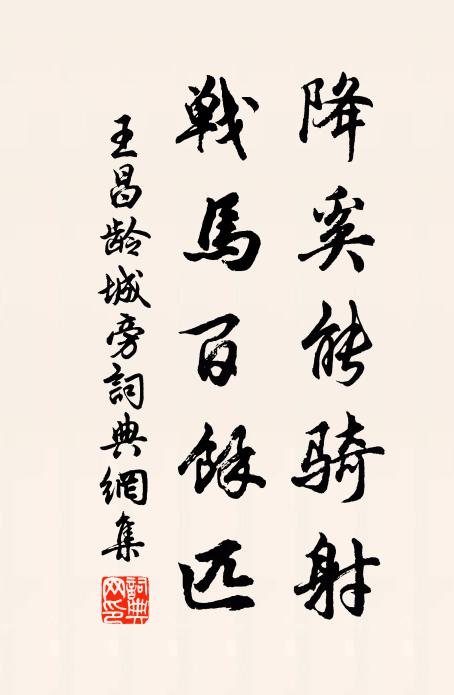 降奚能骑射
戦馬百餘匹
王昌龄城旁詞典網集
詞典网印